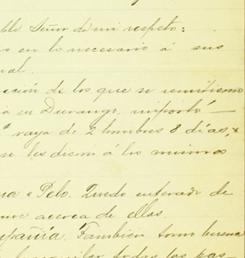 ble Señor de mi respeto:
en lo necesario á sus
de los que se remitieron
en Durango, importó
raya de 2 hombres 8 días,
se les dieron á los mismos
Pelo. Quedo enterado de
acerca de ellas.
pañía. Tambien tomo buena
todos los pas-